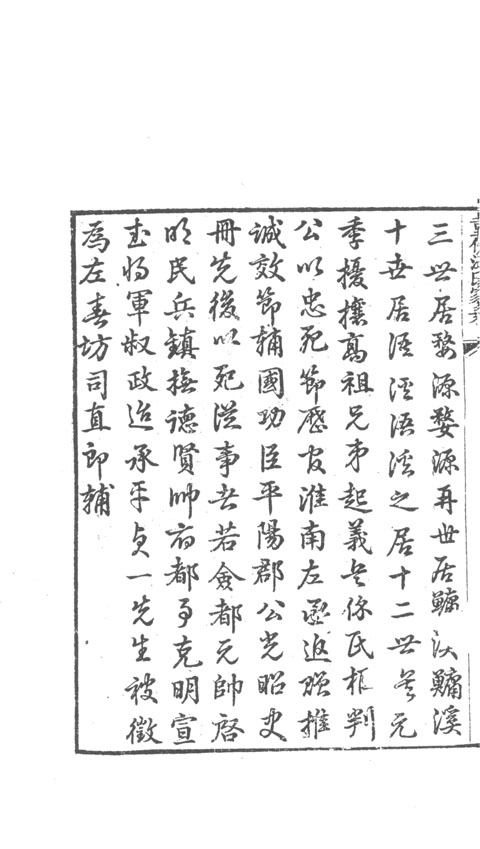 三世居婺源婺源再世居鱅次鱅溪
十世居浯溪浯溪之居十二世若元
季擾攘高祖兄弟起義兵保民柜判
公以忠死節歷官淮南左丞追贈推
誠效節輔國功臣平陽郡公光昭史
冊先後以死從事者若僉都元帥啓
明民兵鎮撫德賢帥府都事克明宣
武將軍叔政迨承平貞一先生被徵
為左春坊司直郎輔